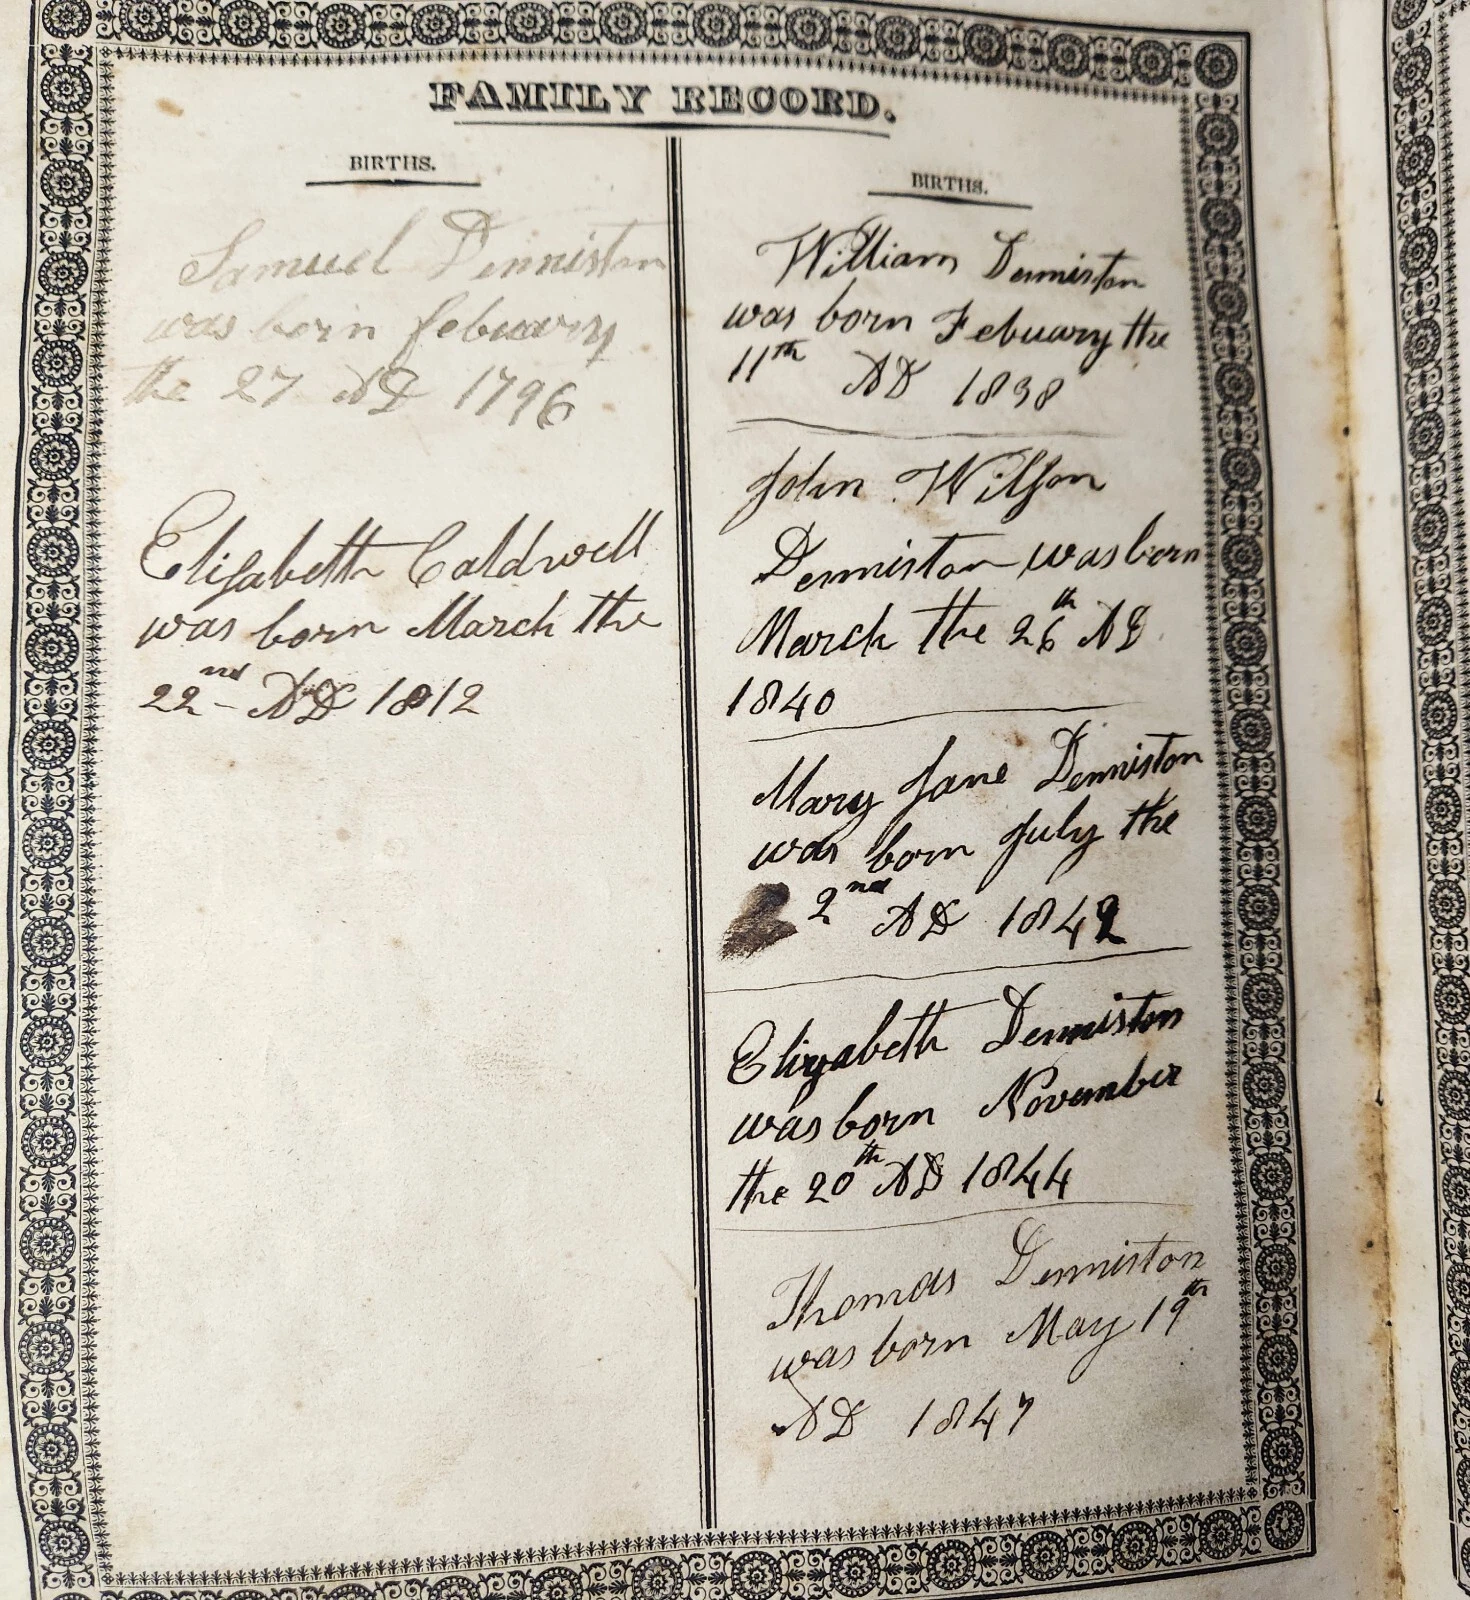 FAMILY RECORD.
BIRTHS.
Samuel Denniston
was born febuary
the 27 AD 1796
Elisabeth Caldwell
was born March the
22nd AD 1812
BIRTHS.
William Denniston
was born Febuary the
11th AD 1838
John Wilson
Denniston was born
March the 26th AD
1840
Mary Jane Denniston
was born July the
2nd AD 1842
Elizabeth Denniston
was born November
the 20th AD 1844
Thomas Denniston
was born May 19th
AD 1847